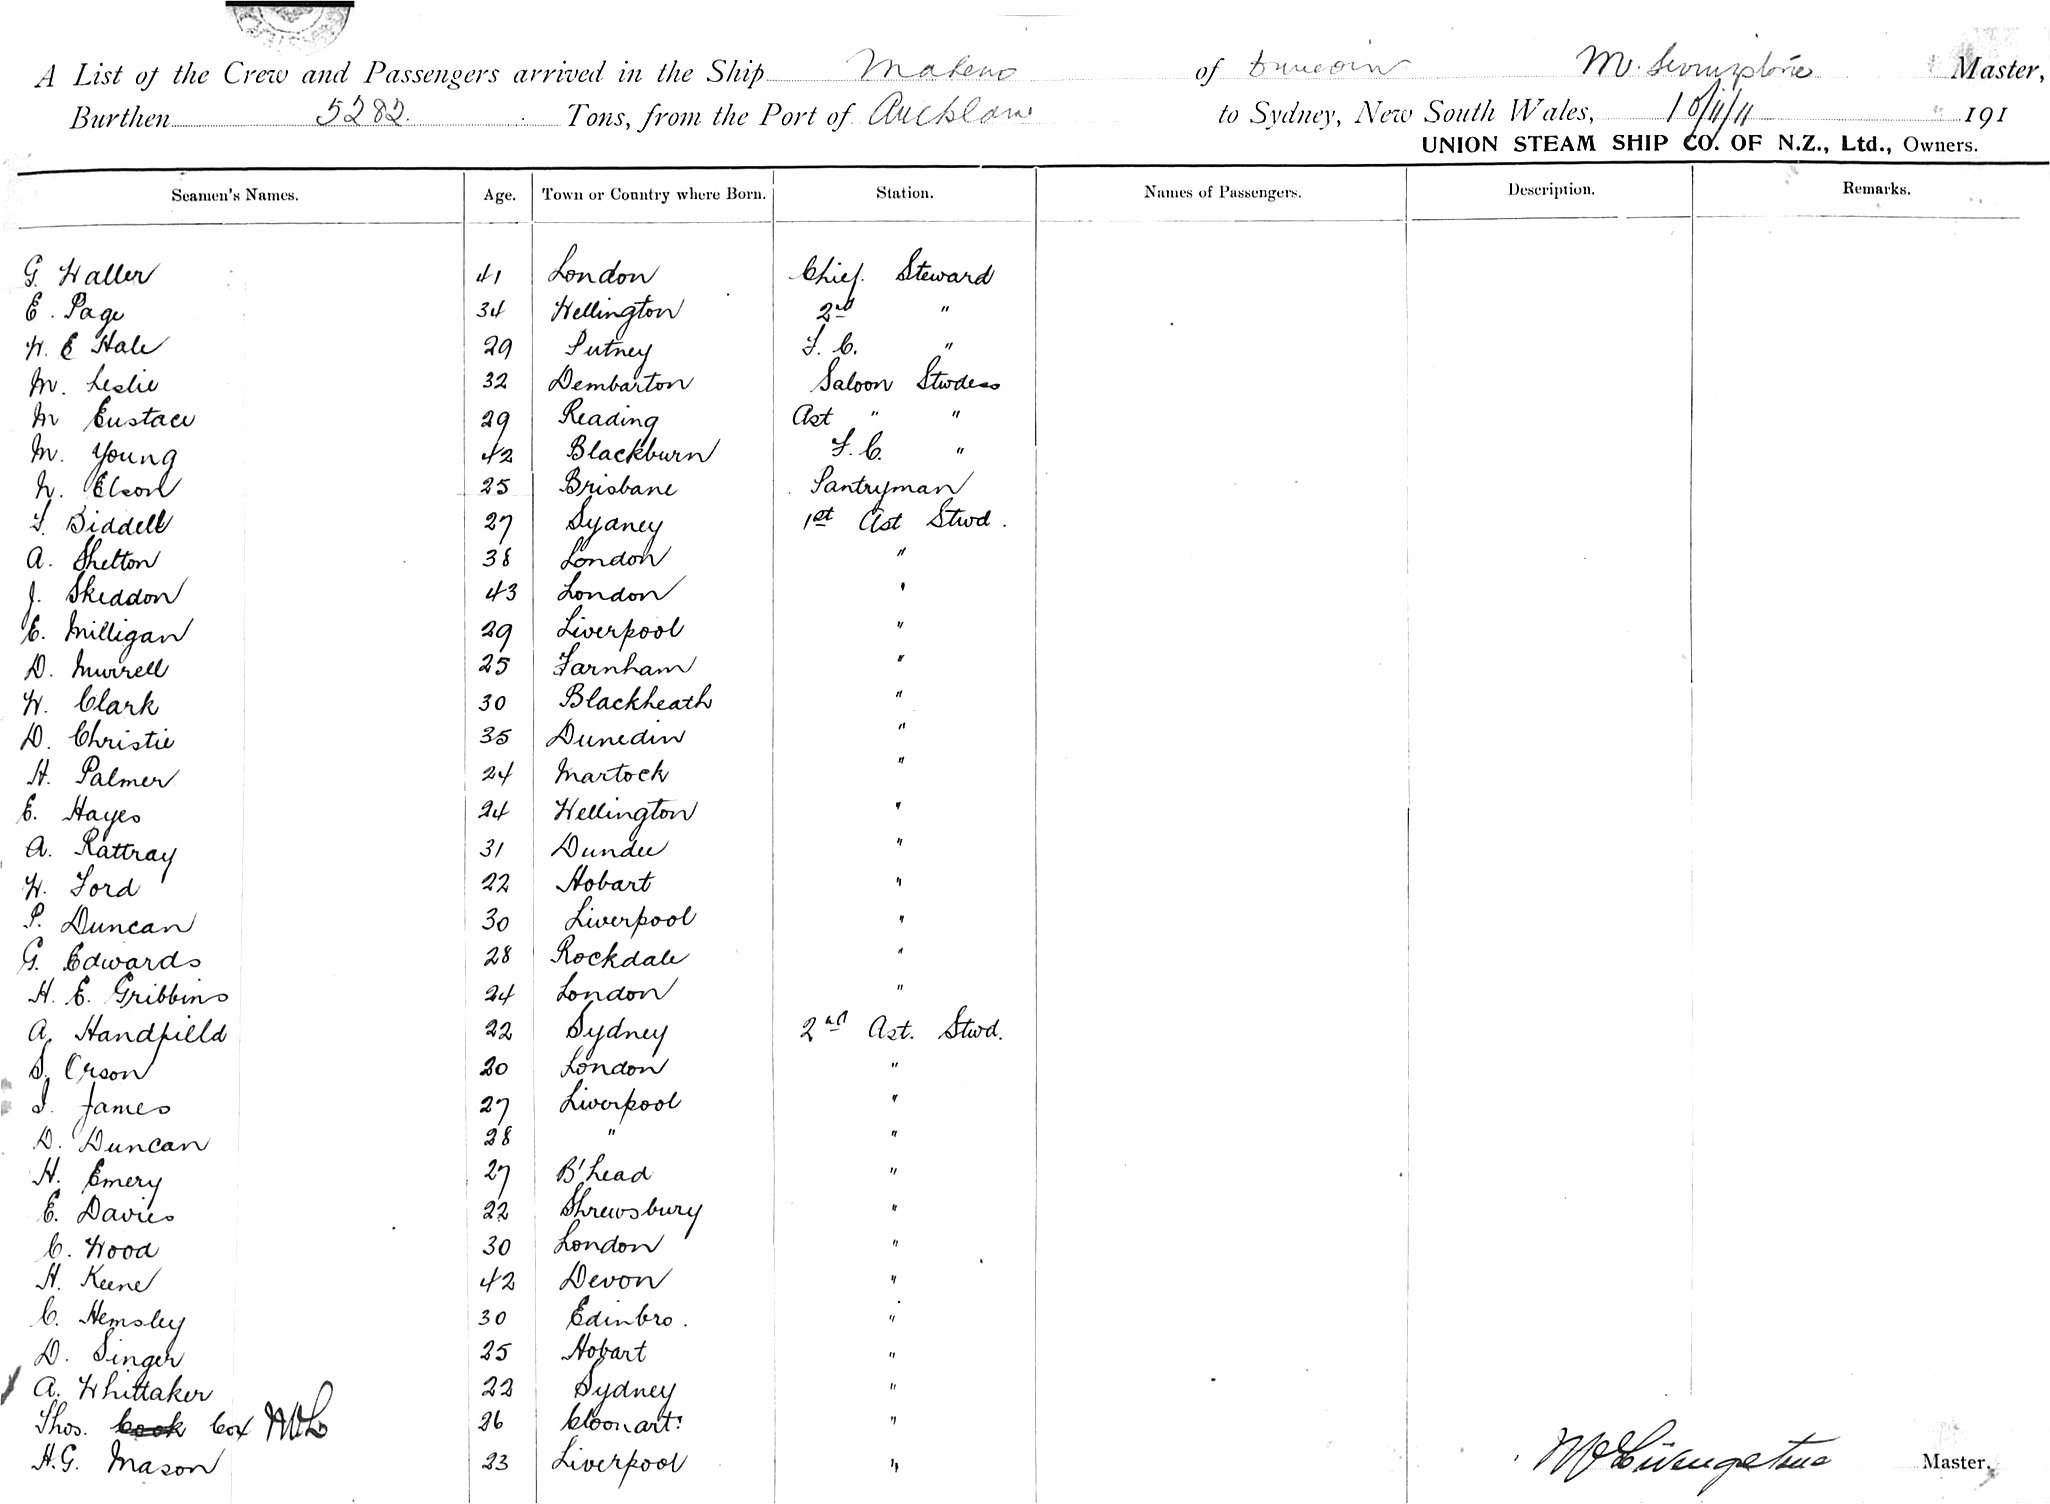 A List of the Crew and Passengers arrived in the Ship Maheno of Dunedin M. Livingstone Master,
Burthen 5282. Tons, from the Port of Auckland to Sydney, New South Wales, 10/11/11 191
UNION STEAM SHIP CO. OF N.Z., Ltd., Owners.
Seamen's Names. Age. Town or Country where Born. Station. Names of Passengers. Description. Remarks.
G. Waller 41 London Chief. Steward
E. Page 34 Wellington 2nd "
W. E Hale 29 Putney F. C. "
M. Leslie 32 Dembarton Saloon Stwdess
M Eustace 29 Reading Ast " "
M. Young 42 Blackburn F. C. "
N. Elson 25 Brisbane Pantryman
F. Biddell 27 Sydney 1st Ast Stwd.
A. Shelton 38 London "
J. Skeddon 43 London "
E. Milligan 29 Liverpool "
D. Murrell 25 Farnham "
W. Clark 30 Blackheath "
D. Christie 35 Dunedin "
H. Palmer 24 Martock "
E. Hayes 24 Wellington "
A. Rattray 31 Dundee "
W. Ford 22 Hobart "
P. Duncan 30 Liverpool "
G. Edwards 28 Rockdale "
H. E. Gribbins 24 London "
A. Handfield 22 Sydney 2nd Ast. Stwd.
S. Orson 20 London "
I. James 27 Liverpool "
D. Duncan 28 " "
H. Emery 27 B'head "
E. Davies 22 Shrewsbury "
C. Wood 30 London "
H. Keene 42 Devon "
C. Hemsley 30 Edinbro. "
D. Singer 25 Hobart "
A. Whittaker 22 Sydney "
Thos. Cook Cox ML 26 Cloonart: "
H.G. Mason 23 Liverpool "
M Livingstone Master.